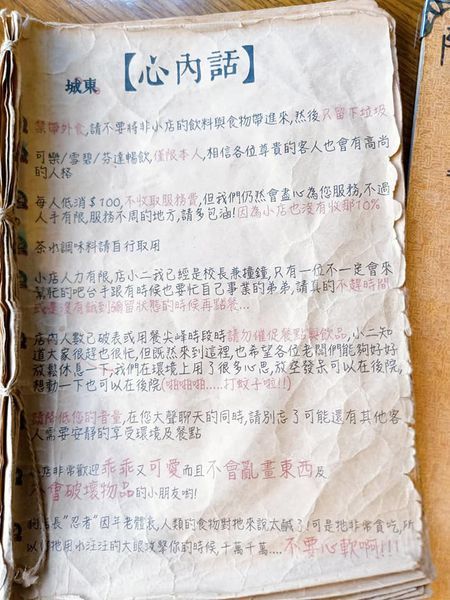 城東【心內話】
禁帶外食,請不要將非小店的飲料與食物帶進來,然後只留下垃圾
可樂/雪碧/芬達暢飲,僅限本人,相信各位尊貴的客人也會有高尚
的人格
每人低消$100,不收取服務費,但我們仍然會盡心為您服務,不過
人手有限,服務不周的地方,請多包涵!因為小店也沒有收那10%
茶水調味料請自行取用
小店人力有限,店小二我已經是校長兼撞鐘,只有一位不一定會來
幫忙的吧台手跟有時候也要忙自己事業的弟弟,請真的不趕時間
或是沒有餓到彌留狀態的時候再點餐...
店內人數已破表或用餐尖峰時段時請勿催促餐點與飲品,小二知
道大家很趕也很忙,但既然來到這裡,也希望各位老闆們能夠好好
放鬆休息一下,我們在環境上用了很多心思,放空發呆可以在後院,
想動一下也可以在後院(啪啪啪.....打蚊子啦!!)
請降低您的音量,在您大聲聊天的同時,請別忘了可能還有其他客
人需要安靜的享受環境及餐點
店非常歡迎乖乖又可愛而且不會亂畫東西及
不會破壞物品的小朋友喲!
店長"忍者"因年老體衰,人類的食物對牠來說太鹹了!可是牠非常貪吃,所
以牠用水汪汪的大眼攻擊你的時候,千萬千萬....不要心軟啊!!!